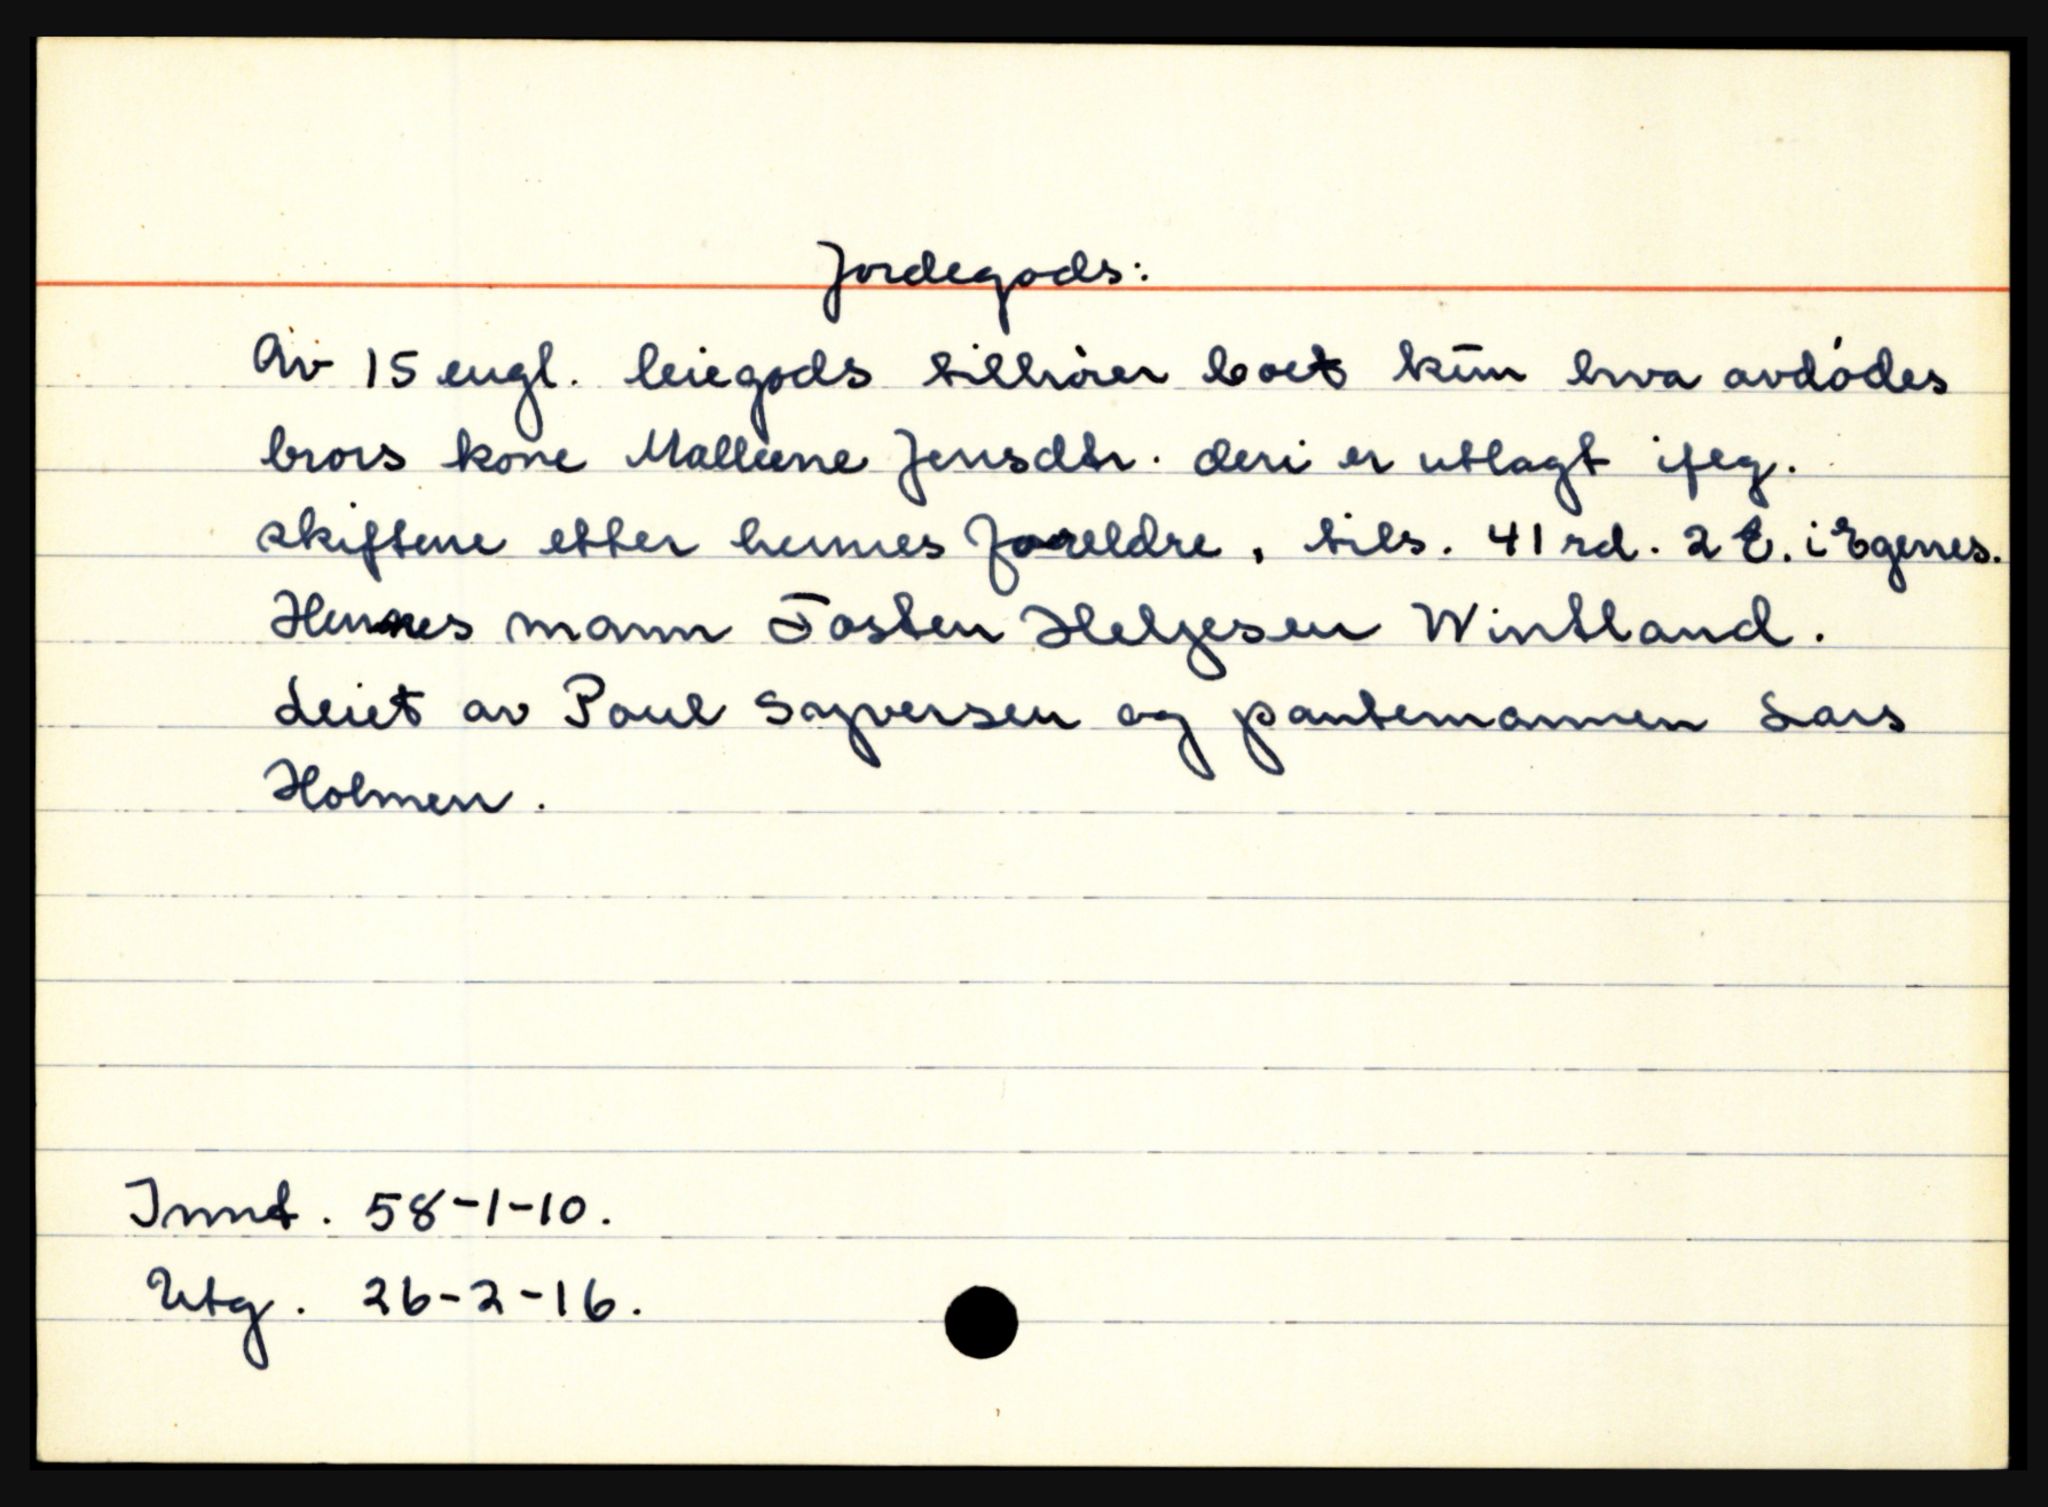 Jordegods:
Av 15 engl. leiegods tilhører boet kūn hva avdødes
brors kone Malleene Jensdtr. deri er utlagt iføg.
skiftene etter hennes foreldre, tils. 41 rd. 2 E. i Egenes.
Hennes mann Tosten Helgesen Wintland.
Leiet av Poul Syversen og pantemannen Lars
Holmen.
Innt. 58-1-10.
Utg. 26-2-16.